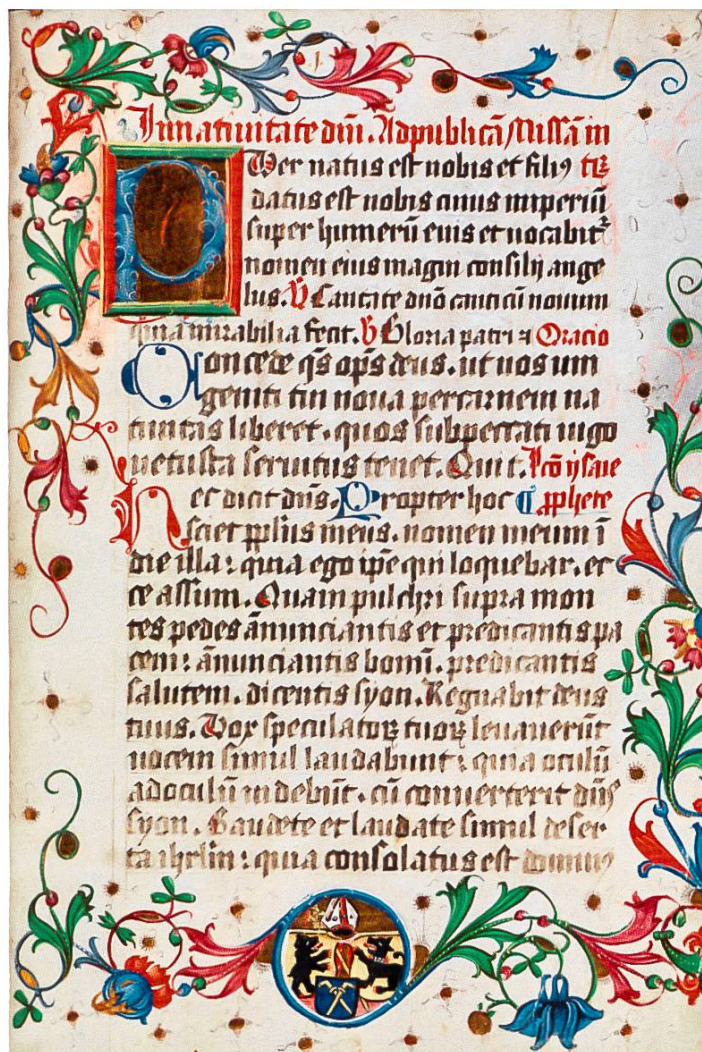 In natiuitate dm̄. Ad publicā Missā in
Puer natus est nobis et filiꝰ
datus est nobis cuius imperiū
super humerū eius et uocabit᷑
nomen eius magni consilij ange
lus. V Cantate dn̄o canticū nouum
quia mirabilia fecit. V Gloria patri ⁊ Oracio
Concede qs̄ op̄s deus. ut nos um
geniti tui noua per carnem na
tiuitas liberet. quos sub peccati iugo
uetusta seruitus tenet. Qui t. lcō ysaie
Hec dicit dn̄s. Propter hoc ꝓphete
sciet ppl̄us meus. nomen meum ī
die illa: quia ego ip̄e qui loquebar. ec
ce assum. Quam pulchri supra mon
tes pedes ānunciantis et predicantis pa
cem: ānunciantis bonū. predicantis
salutem. dicentis syon. Regnabit deus
tuus. Vox speculatoꝝ tuoꝝ leuauerūt
uocem simul laudabunt: quia oculū
ad oculū uidebūt. cū conuerterit dn̄s
syon. Gaudete et laudate simul deser
ta ihrlm̄: quia consolatus est dominꝰ